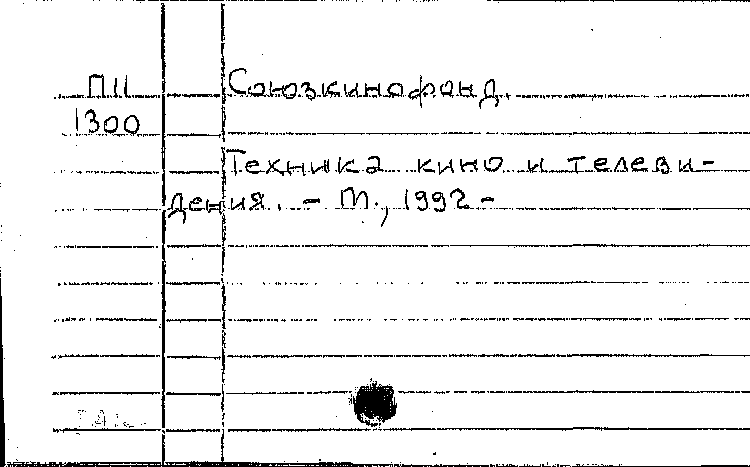 П11 Союзкинофонд.
1300
Техника кино и телеви-
дения. - М., 1992 -